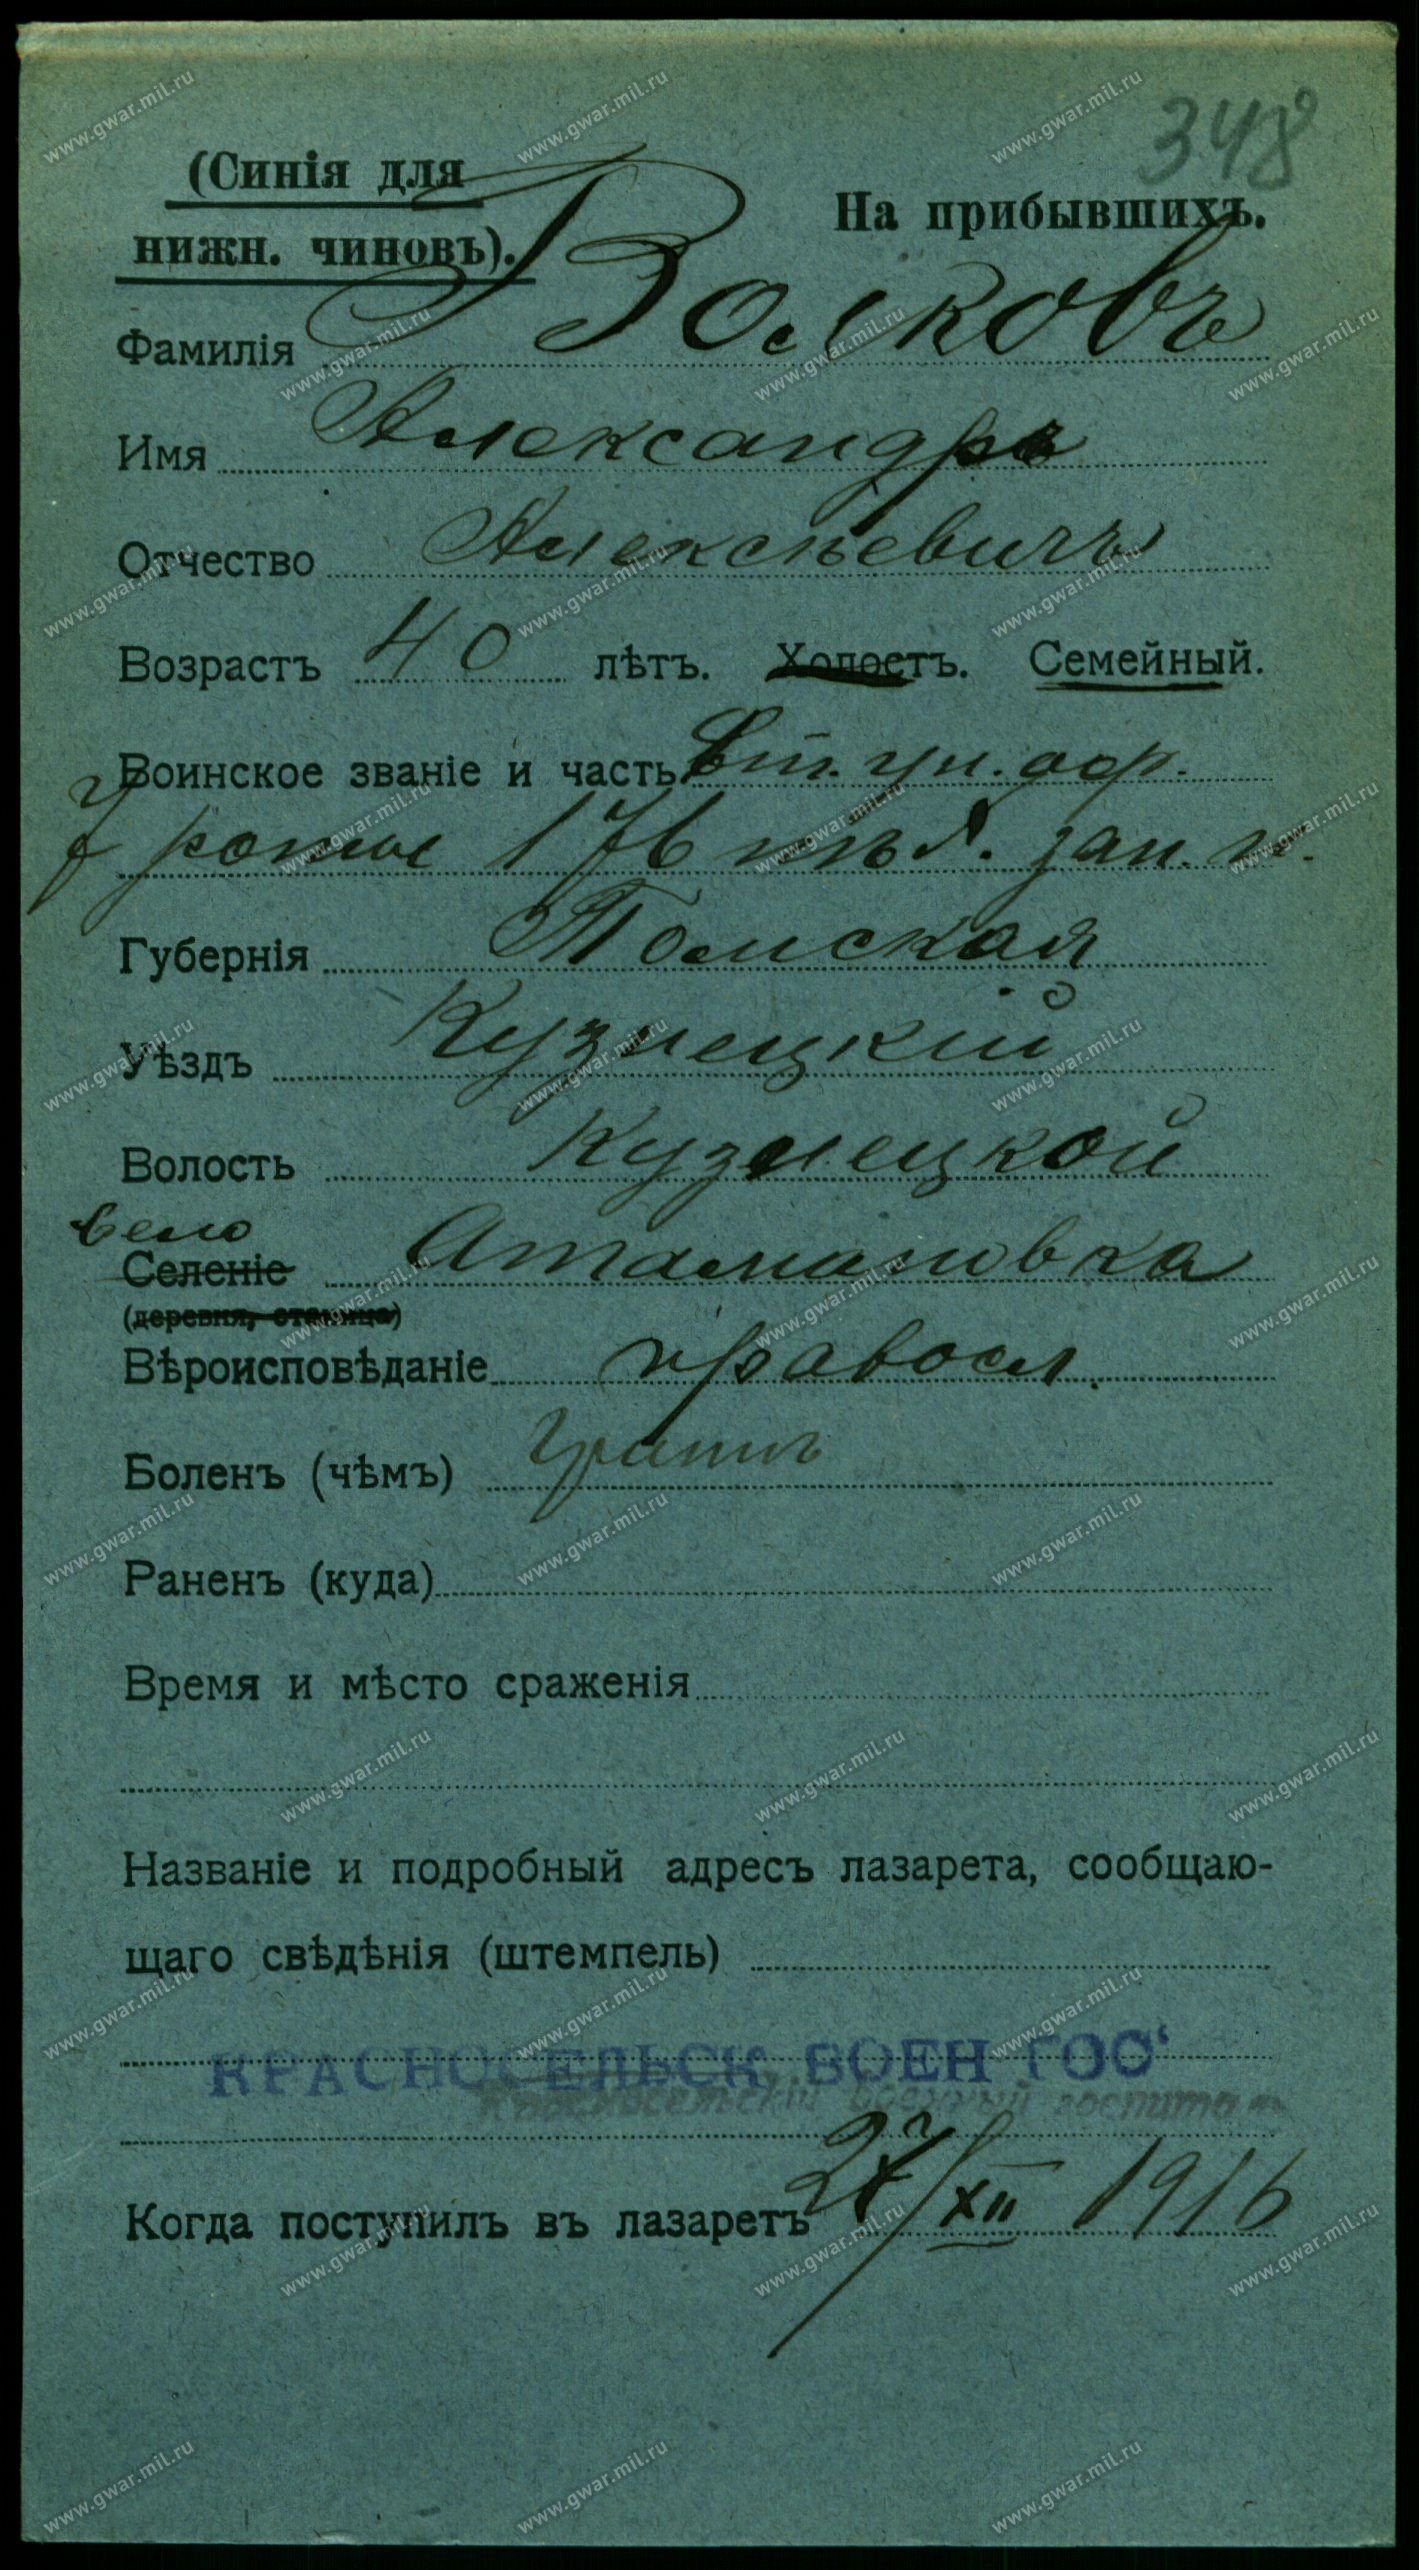 348
(Синія для
нижн. чиновъ).
На прибывшихъ.
Фамилія Волковъ
Имя Александръ
Отчество Алексѣевичъ
Возрастъ 40 лѣтъ. Холостъ. Семейный.
Воинское званіе и часть ст. ун. оф.
7 роты 176 пѣх. зап. п.
Губернія Томская
Уѣздъ Кузнецкій
Волость Кузнецкой
Село
Селеніе Атамановка
(деревня, станица)
Вѣроисповѣданіе правосл.
Боленъ (чѣмъ) Гриппъ
Раненъ (куда)
Время и мѣсто сраженія
Названіе и подробный адресъ лазарета, сообщаю-
щаго свѣдѣнія (штемпель)
КРАСНОСЕЛЬСК. ВОЕН ГОС
Красносельскій военный госпиталь
Когда поступилъ въ лазаретъ 27/XII 1916